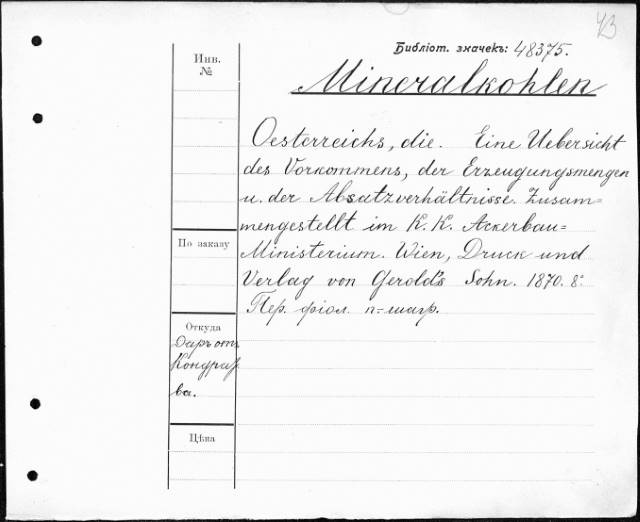 43
Библіот. значекъ: 48375.
Инв.
№
Mineralkohlen
Oesterreichs, die. Eine Uebersicht
des Vorkommens, der Erzeugungsmengen
u. der Absatzverhältnisse. Zusam=
mengestellt im K. K. Ackerbau=
Ministerium. Wien, Druck und
Verlag von Gerold's Sohn. 1870. 8:
Пер. фіол. п.-шагр.
По заказу
Откуда
Даръ отъ
Цѣна